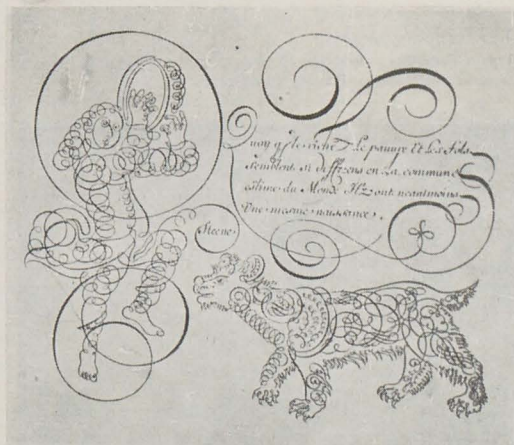 uoy q le riche & Le pauvre Et Les Fols
Semblent si differens en La commune
estime du Monde Ilz ont neantmoins
Vne mesme naissance.